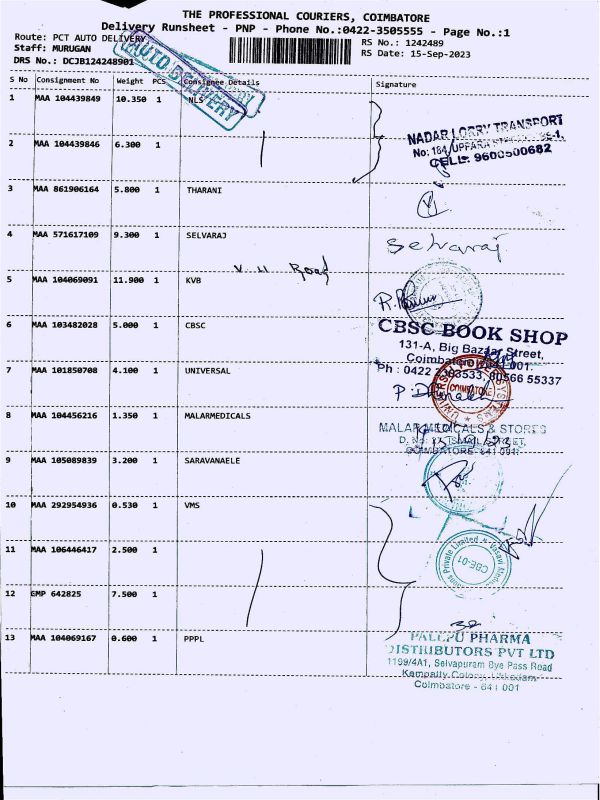 THE PROFESSIONAL COURIERS, COIMBATORE
Delivery Runsheet - PNP - Phone No.:0422-3505555 - Page No.:1
Route: PCT AUTO DELIVERY
RS No.: 1242489
Staff: MURUGAN
RS Date: 15-Sep-2023
DRS No.: DCJB124248901
AUTO DELIVERY
S No Consignment No Weight PCS Consignee Details Signature
1 MAA 104439849 10.350 1 NLS
NADAR LORRY TRANSPORT
No: 184, UPPARA
CELL: 9600500682
2 MAA 104439846 6.300 1
3 MAA 861906164 5.800 1 THARANI
4 MAA 571617109 9.300 1 SELVARAJ
Selvaraj
V H Road
5 MAA 104069091 11.900 1 KVB
6 MAA 103482028 5.000 1 CBSC
CBSC BOOK SHOP
131-A, Big Bazaar Street,
Coimbatore 641 001.
Ph : 0422 2393533, 80566 55337
7 MAA 101850708 4.100 1 UNIVERSAL
COIMBATORE
8 MAA 104456216 1.350 1 MALARMEDICALS
MALAR MEDICALS & STORES
COIMBATORE - 641 001.
9 MAA 105089839 3.200 1 SARAVANAELE
10 MAA 292954936 0.530 1 VMS
11 MAA 106446417 2.500 1
Private Limited
CBE-01
12 GMP 642825 7.500 1
13 MAA 104069167 0.600 1 PPPL
PALEPU PHARMA
DISTRIBUTORS PVT LTD
1199/4A1, Selvapuram Bye Pass Road
Coimbatore - 641 001